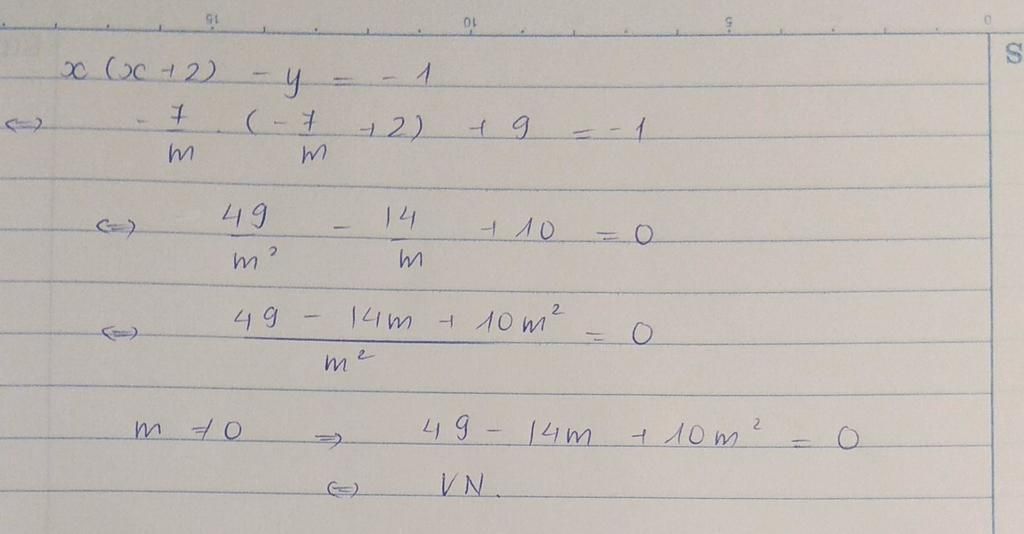 15 10 5 0
S
x (x + 2) - y = - 1
⇔ - 7/m . (- 7/m + 2) + 9 = - 1
⇔ 49/m² - 14/m + 10 = 0
⇔ (49 - 14m + 10m²)/m² = 0
m ≠ 0 ⇒ 49 - 14m + 10m² = 0
⇔ VN.